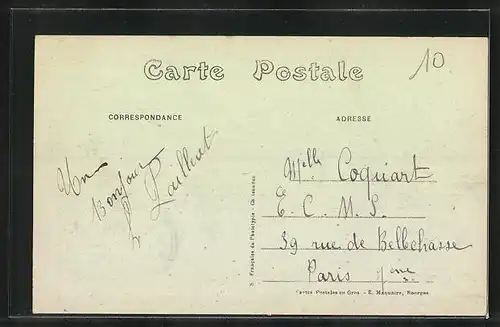 10
Carte Postale
CORRESPONDANCE
ADRESSE
Un
Bonjour
Melle Coquart
E. C. M. S.
39 rue de Bellechasse
Paris 7eme
S. Française de Phototypie -
Cartes Postales en Gros - E. Maquaire, Bourges